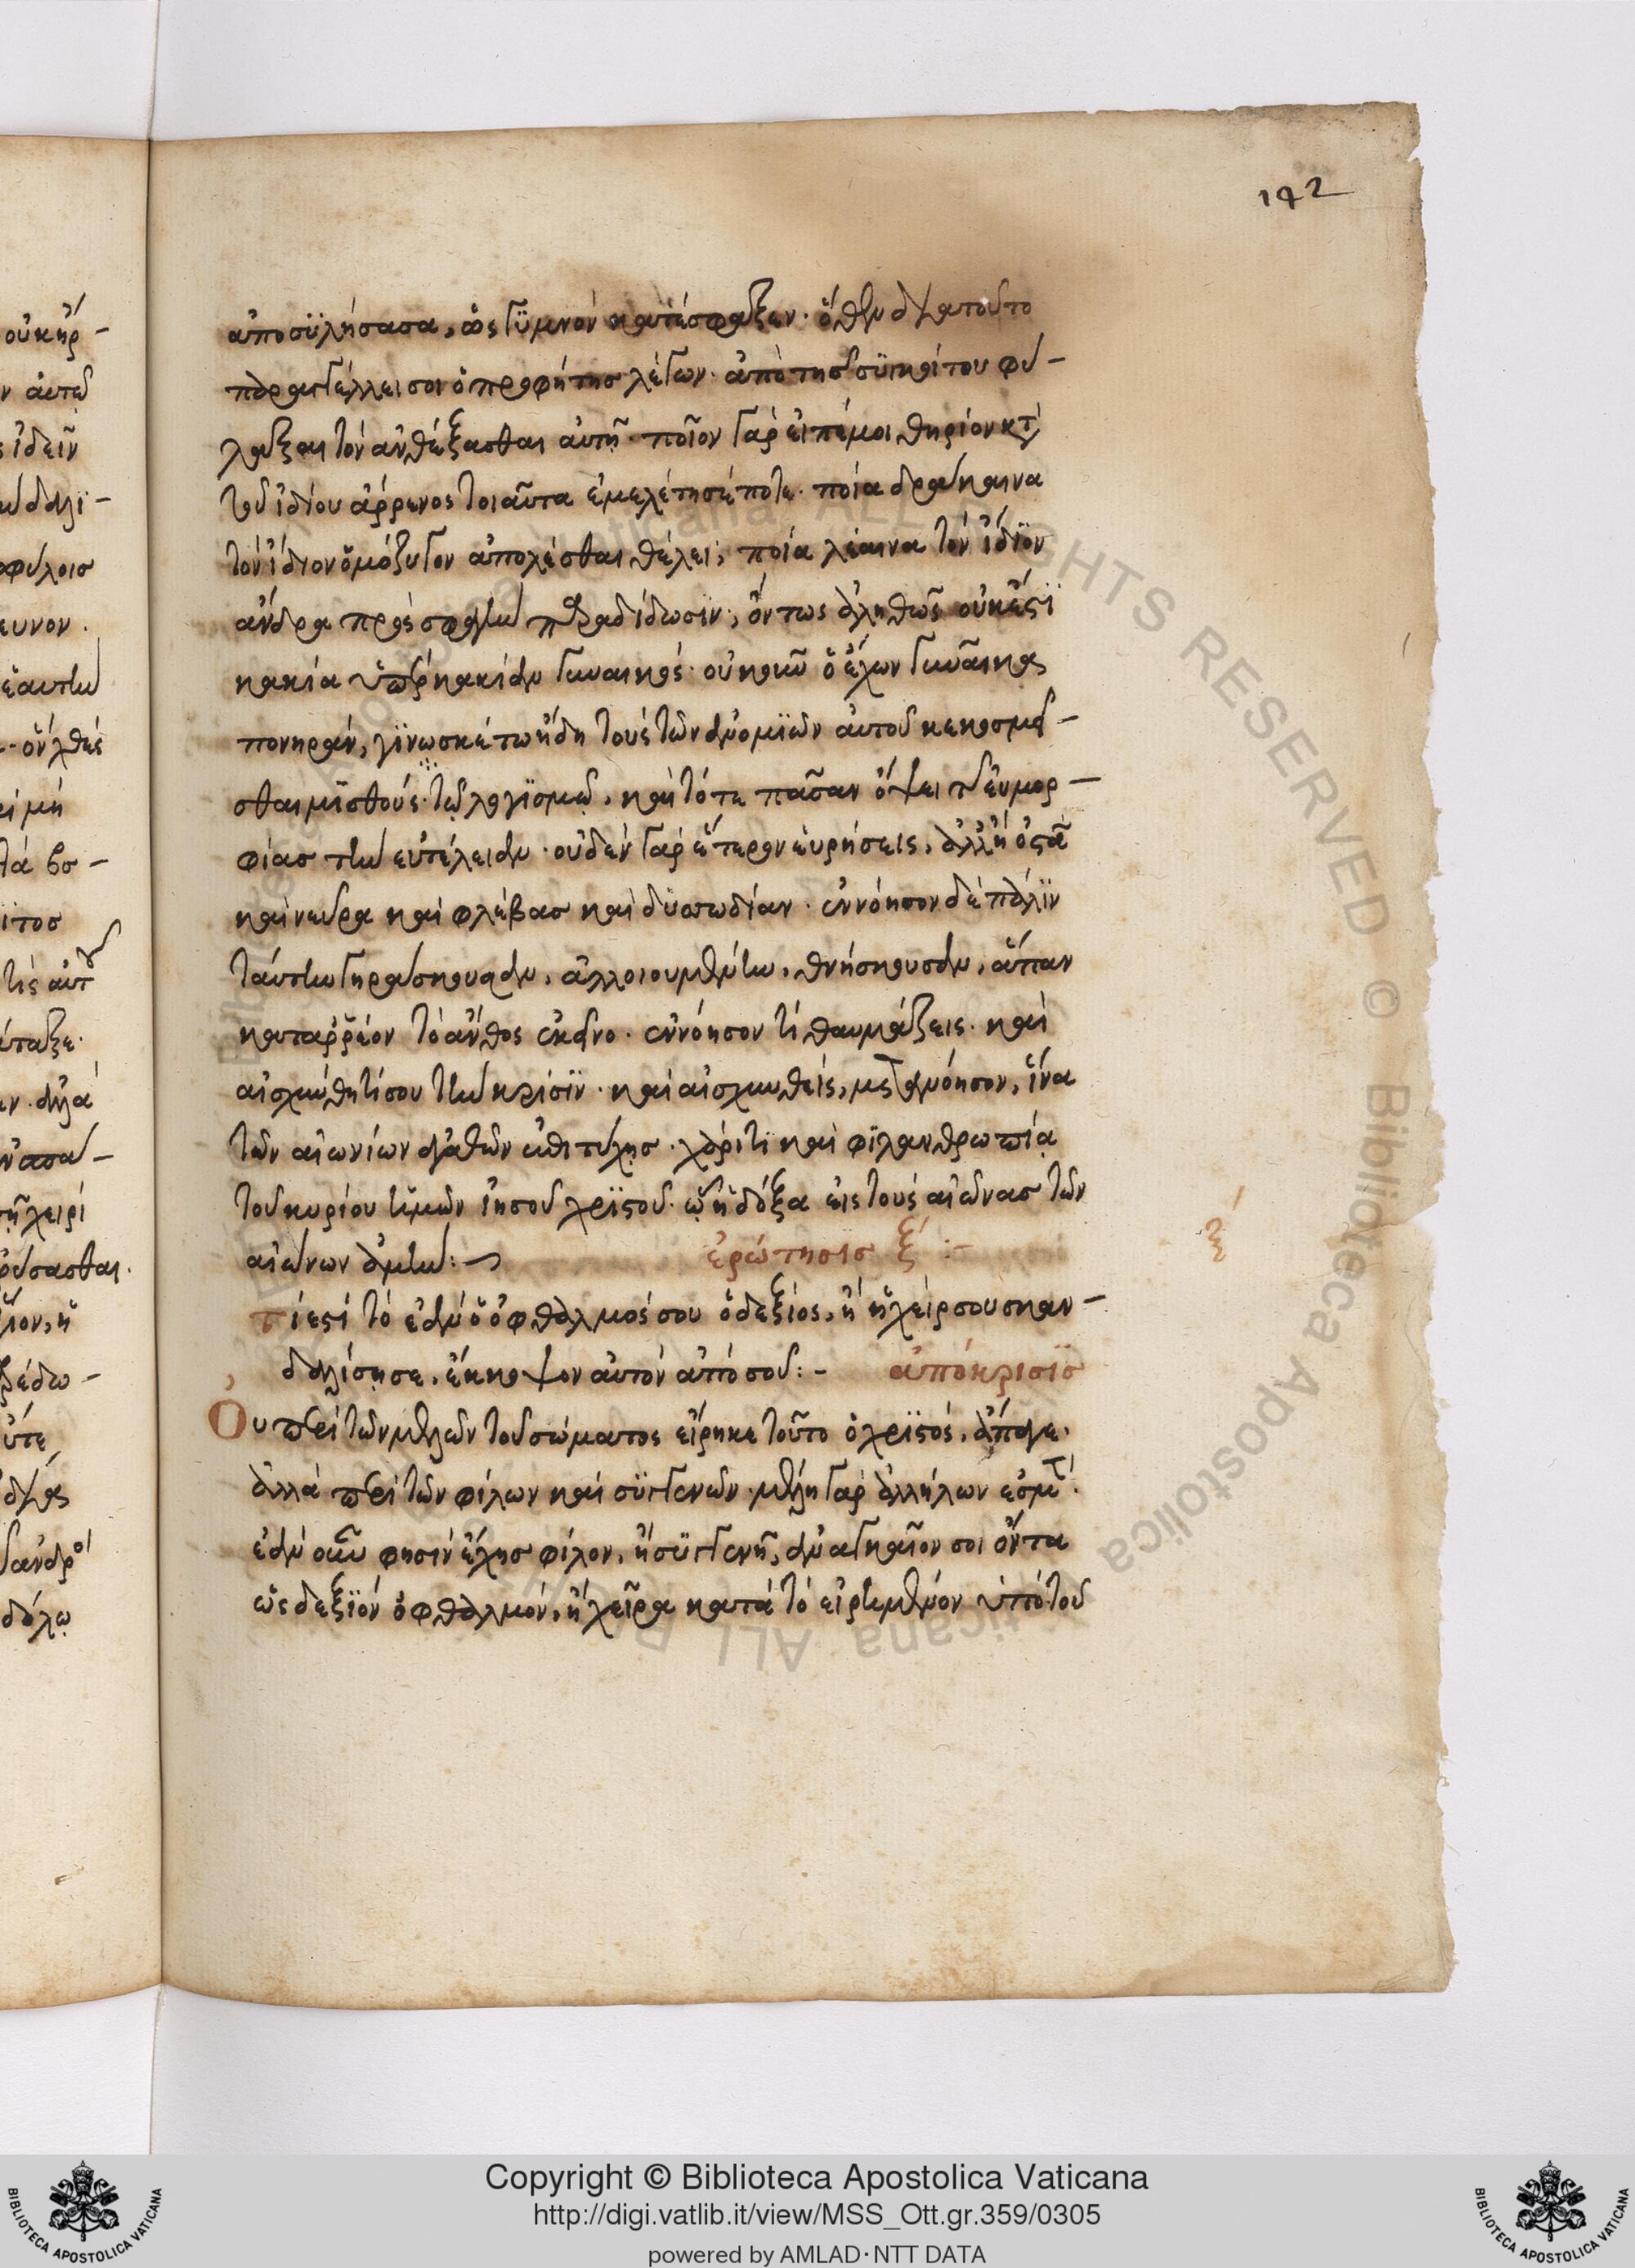 142
ἀποσϋλήσασα, ὡς γϋμνὸν κατέσφαξεν· ὅθεν διὰ τοῦτο
παραγγέλλει σοι ὁ προφήτης λέγων· ἀπὸ τῆς συγκοίτου φύ-
λαξαι τὸν ἀνθέξασθαι αὐτῇ· ποῖον γὰρ εἰπέ μοι θηρίον κατὰ
τοῦ ἰδίου ἄρρενος τοιαῦτα ἐμελέτησέ ποτε· ποία δράκαινα
τὸν ἴδιον ὁμόζυγον ἀπολέσθαι θέλει; ποία λέαινα τὸν ἴδϊον
ἄνδρα πρὸς σφαγὴν παραδίδωσϊν; ὄντως ἀληθῶς οὐκ ἔστϊ
κακία ὑπὲρ κακίαν γυναικός· οὐκοῦν ὁ ἔχων γυναῖκα
πονηράν, γϊνωσκέτω ἤδη τοὺς τῶν ἀνομϊῶν αὐτοῦ κεκομί-
σθαι μϊσθούς· τῷ λογϊσμῷ, καὶ τότε πᾶσαν ὄψει τῆς εὐμορ-
φίας τὴν εὐτέλειαν· οὐδὲν γὰρ ἕτερον εὑρήσεις, ἀλλ' ἢ ὀστᾶ
καὶ νεῦρα καὶ φλέβας καὶ δυσωδίαν· ἐννόησον δὲ πάλϊν
ταύτην γηράσκουσαν, ἀλλοιουμένην, θνήσκουσαν, ἅπαν
καταρρέον τὸ ἄνθος ἐκεῖνο· ἐννόησον τί θαυμάζεις· καὶ
αἰσχύνθητί σου τὴν κρίσϊν· καὶ αἰσχυνθείς, μετανόησον, ἵνα
τῶν αἰωνίων ἀγαθῶν ἐπιτύχῃς· χάριτϊ καὶ φϊλανθρωπίᾳ
τοῦ κυρίου ἡμῶν ἰησοῦ χρϊστοῦ· ᾧ ἡ δόξα εἰς τοὺς αἰῶνας τῶν
αἰώνων ἀμήν:
ἐρώτησις ξʹ :-
ξʹ
τί ἐστὶ τὸ ἐὰν ὁ ὀφθαλμός σου ὁ δεξιός, ἢ ἡ χείρ σου σκαν-
δαλίσῃ σε, ἔκκοψον αὐτὸν ἀπὸ σοῦ:- ἀπόκρισϊς
Οὐ περὶ τῶν μελῶν τοῦ σώματος εἴρηκε τοῦτο ὁ χρϊστός, ἄπαγε·
ἀλλὰ περὶ τῶν φίλων καὶ σϋγγενῶν· μέλη γὰρ ἀλλήλων ἐσμέν·
ἐὰν οὖν φησὶν ἔχῃς φίλον, ἢ σϋγγενῆ, ἀναγκαῖόν σοι ὄντα
ὡς δεξϊὸν ὀφθαλμόν, ἢ χεῖρα κατὰ τὸ εἰρημένον ὑπὸ τοῦ
Copyright © Biblioteca Apostolica Vaticana
http://digi.vatlib.it/view/MSS_Ott.gr.359/0305
powered by AMLAD·NTT DATA